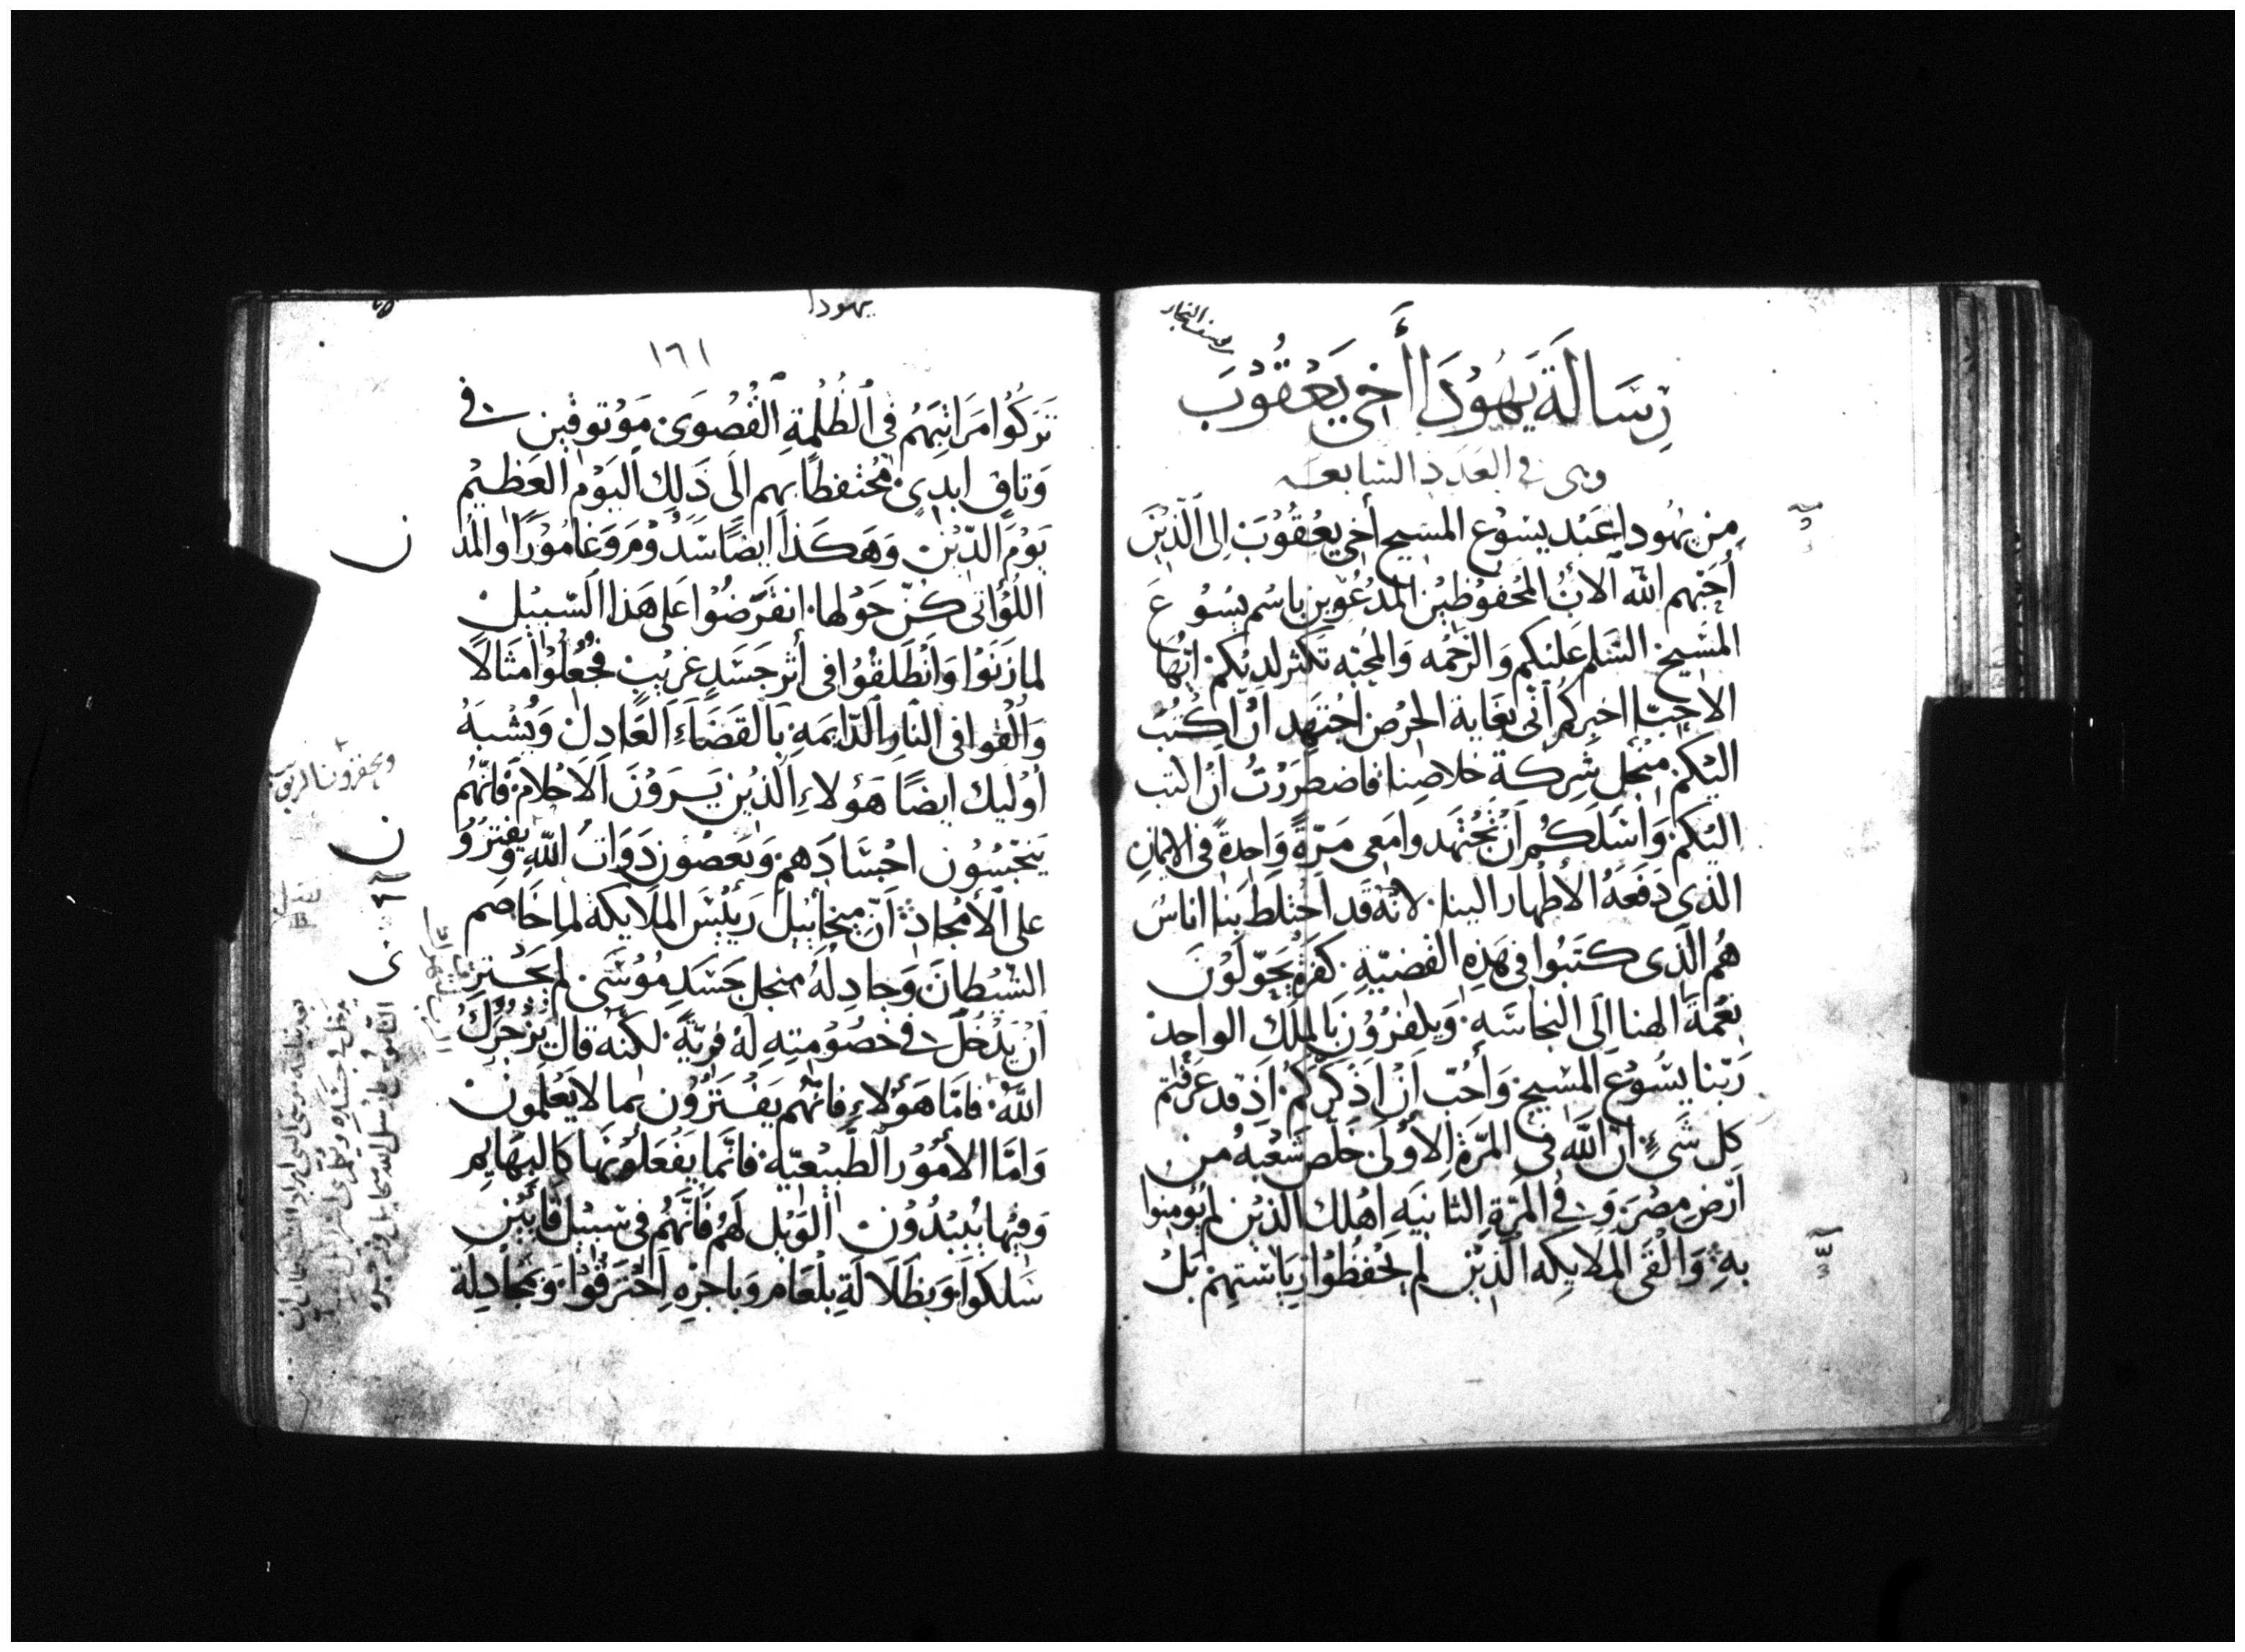 يوسف النجار
رِسَالَةَ يَهُوُدَا أَخِي يَعْقُوْبَ
وهى في العَدَدِ السَابعَه
مِن يهُودا عَبْد يسُوْع المسَيح أخى يعْقُوُبَ إلى الَّذِيْنَ
أحَبّهم الله الآبُ المحُفوُظِيْن المدْعُوّين باسْم يسُوُع
المسَيح السَلم عَليكم وَالرَحْمه وَالمحُبّه تكثر لديْكم ايُّها
الاحِبَّا اخبركم انّى بغَاية الحرْص اجْتَهد انْ اكتُبَ
اليْكم منجل شِركةِ خلاصِنا فاضطررْتُ انْ اكتب
اليْكم وَاسَلَكمُ انْ تجْتهَدوا مَعى مَرّةً وَاحِدةً فى الايمَانِ
الذى دَفعَهُ الأطهار الينا لانّه قَد اخْتلط بَنا اناسُ
هُم الّذى كتَبُوا فى هَذِه القضيّة كفرة يحَوّلوُنَ
نعْمة الهنا الَى النجاسَه وَيكفرُوُن بالملَك الواحِد
رَبّنا يسُوع المسَيح وَأحُبّ انْ اذكّركمْ اذ قد عَرفتم
كل شَىءٍ انّ اللَّه فى المرّة الأوُلى خلّص شَعْبهُ من
أرْضِ مصْرَ وَفى المرّةِ الثانيَه اهْلك الّذيْن لم يُومِنُوا
بهِ وَالْقَى الملايكه الّذيْن لم يحْفظُوْا ريَاسَتهمْ بَلْ
يهودا
١٦١
تَرَكُوُا مَرَاتبَهُم فى الظُلْمةِ القُصْوَى مَوْثوقينَ فى
وَثاقٍ ابدِىّ محُتفظًا بهم الَى ذَلِك اليَوْم العَظيْم
يوْمَ الدّيْن وَهَكَذا ايضًا سَدُوْمَ وَغامُوْرَا والمدُ
اللوُاتى كنّ حَوْلها انقرَضُوا عَلى هَذا السّبيْل
لما زنَوْا وَانْطلقُوا فى أثر جَسَدٍ غريْبٍ فجُعُلوْا مثَالاً
وَالْقوا فى النّار الدّايمَةِ بالقَضَآءِ العَادِل وَيُشبهُ
أوْليك ايضًا هَؤلاءِ الّذيْن يَرَوْنَ الاحْلام فانّهُم
ينجّسُوُن اجْسَادَهم وَيَعصُون رَبوات اللهِ وَيفترَوُ
على الأمْجاد انّ ميخائيل رَيئسَ الملايكة لما خَاصَم
الشيْطانَ وَجادله منجل جَسَدِ مُوُسَى لم يجْتر
ان يُدْخل فى خصُوُمتهِ لهُ فرْيةً لكنّه قال يزْجُرُك
اللَّهُ فامّا هَؤلاءِ فانّهُم يَفترُوُن بما لا يَعْلموُن
وَامّا الأمُوُر الطّبيْعيّة فانّما يَفْعَلوُنها كالبَهايم
وَفيْها يُبيدُوُن الْوَيْل لهُم فانّهُم فى سَبيْل قايِيْن
سَلكوا وَبظَلالَةِ بلْعَام وَباجرْهِ احْترقُوا وَبمجُادلة